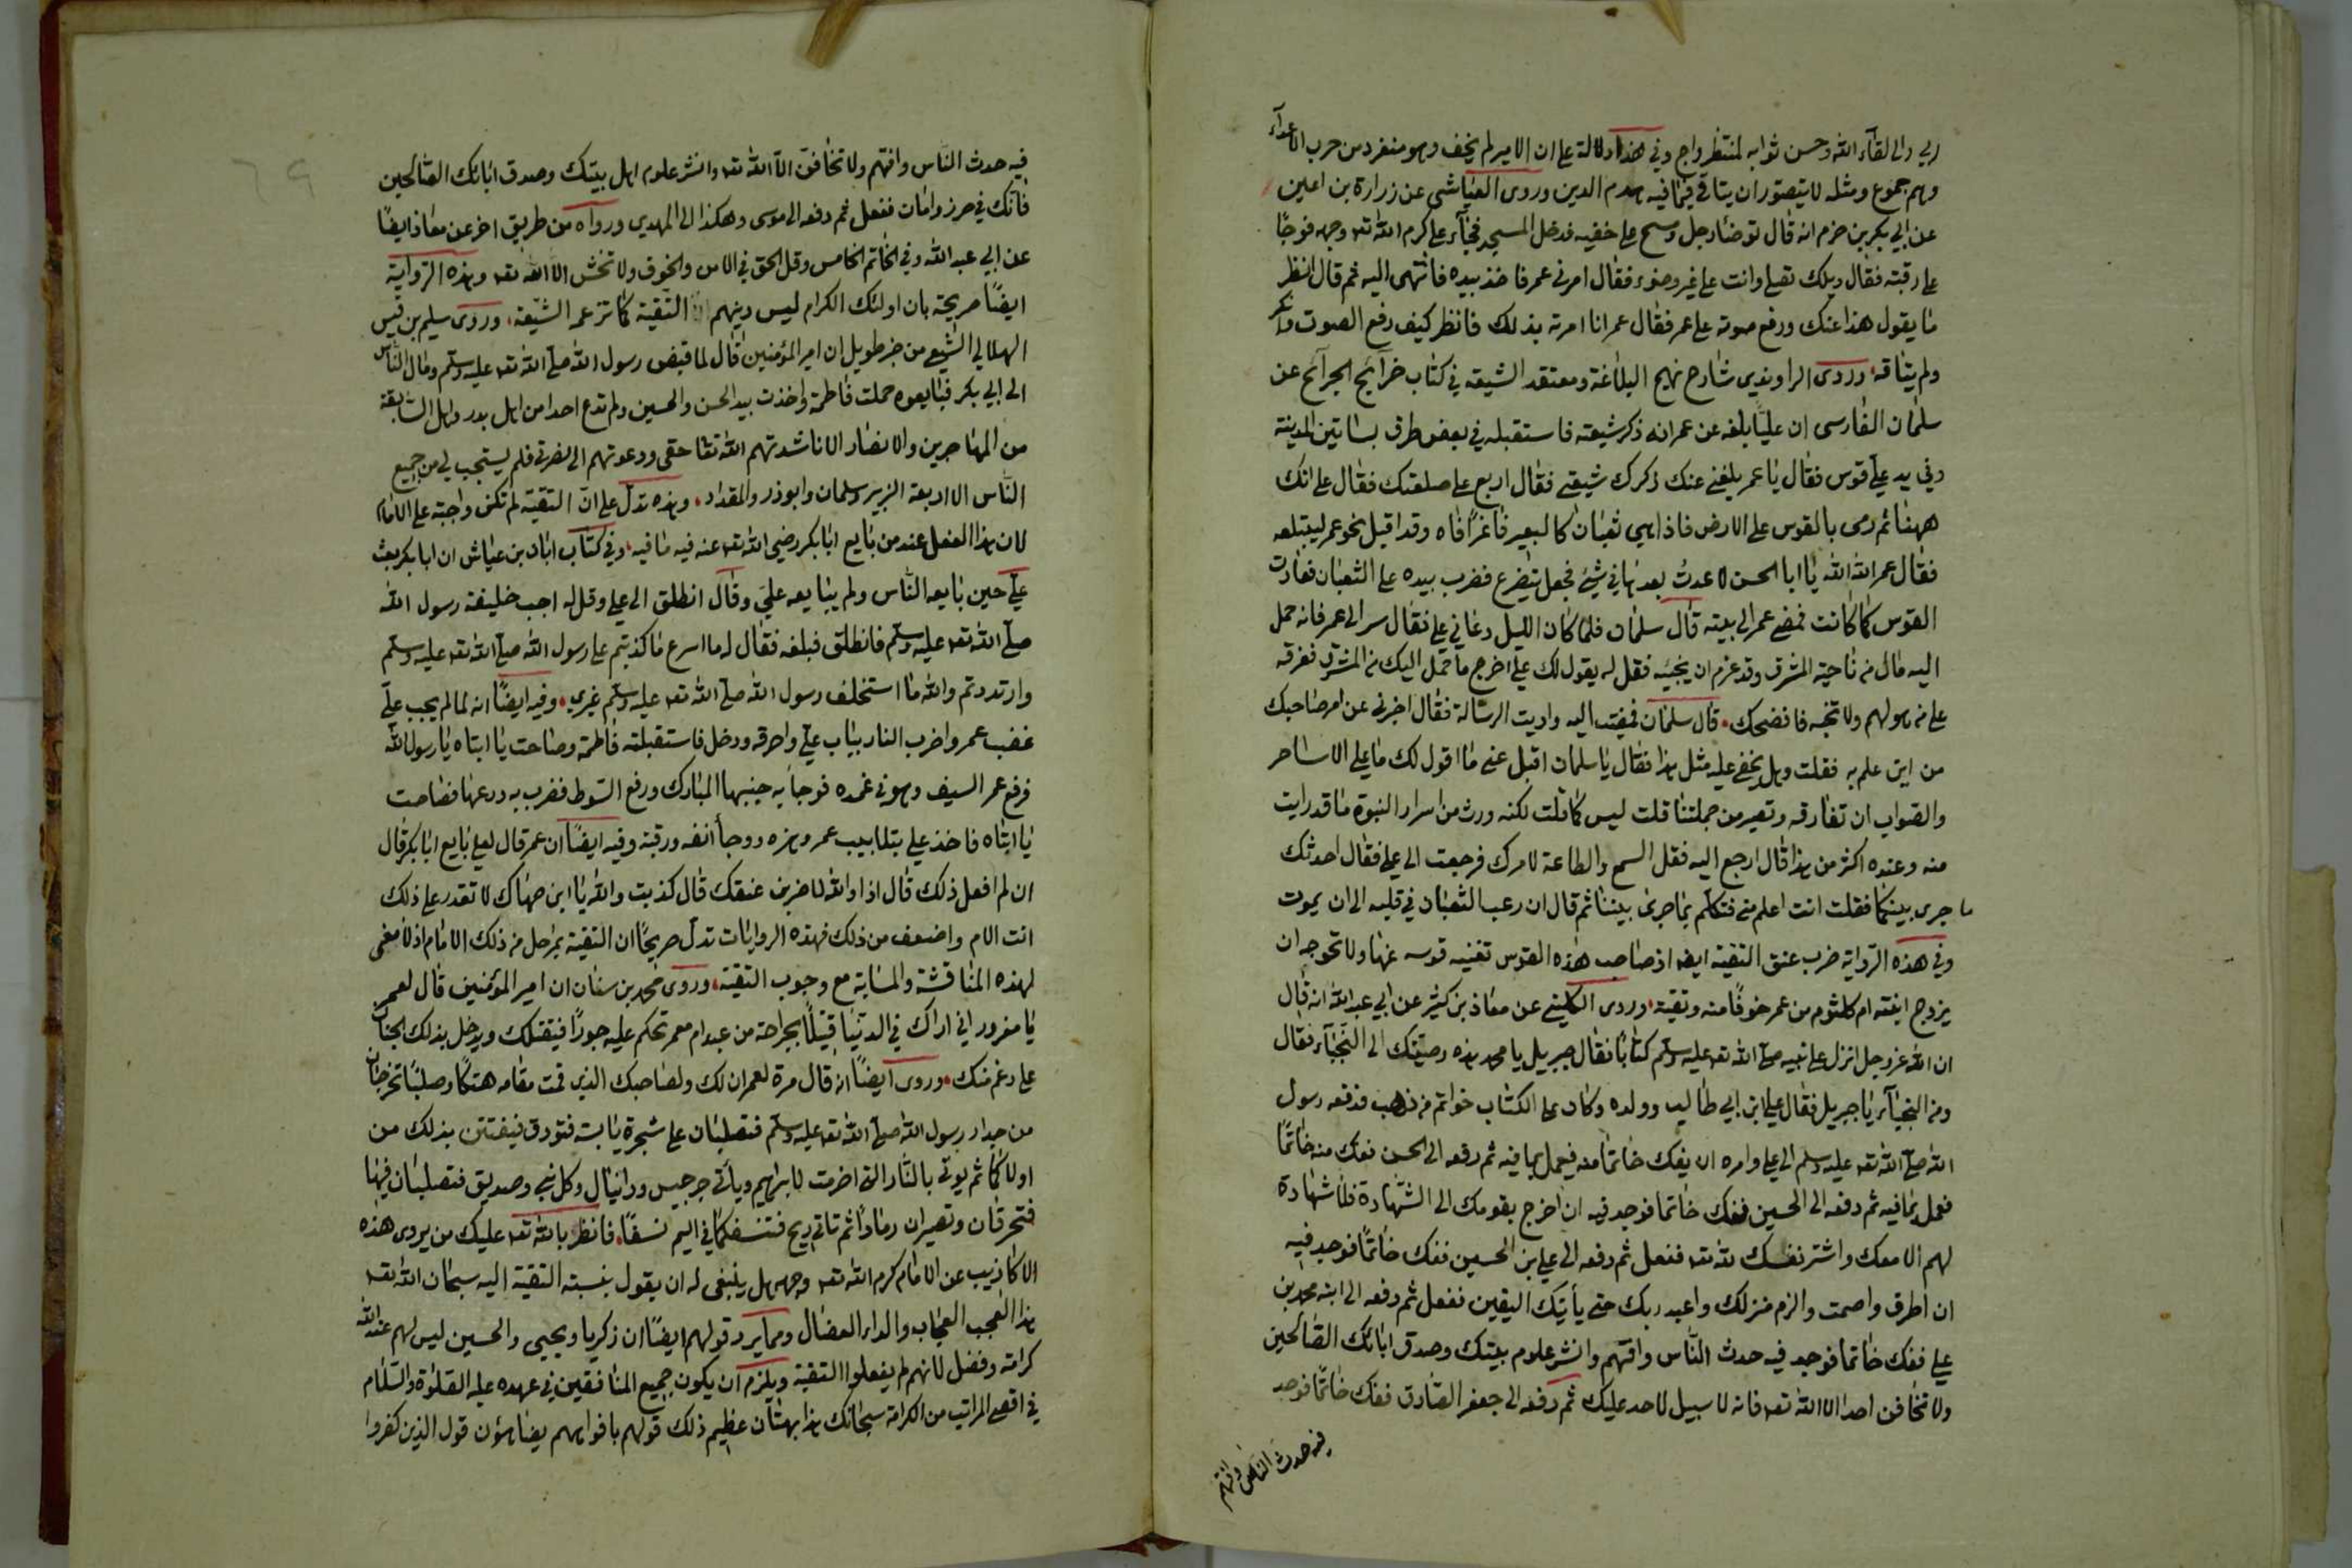 ربي والى لقاء الله وحسن ثوابه لمنتظر واج وفي هذا دلالة على ان الامير لم يخف وهو منفرد من حرب الاعداء
وهم جموع ومثله لا يتصور ان يتاقي فيما فيه هدم الدين وروى العياشي عن زرارة بن اعين
عن ابي بكر بن حزم انه قال توضأ رجل ومسح على خفيه فدخل المسجد فجاء علي كرم الله تعه وجهه فوجأ
على رقبته فقال ويلك تصلي وانت على غير وضوء فقال امرني عمر فاخذ بيده فانتهى اليه ثم قال انظر
ما يقول هذا عنك ورفع صوته على عمر فقال عمر انا امرته بذلك فانظر كيف رفع الصوت وانكر
ولم يتاقه وروى الراوندي شارح نهج البلاغة ومعتقد الشيعة في كتاب خرائج الجرائح عن
سلمان الفارسي ان عليا بلغه عن عمر انه ذكر شيعته فاستقبله في بعض طرق بساتين المدينة
وفي يد علي قوس فقال يا عمر بلغني عنك ذكرك شيعتي فقال اربع على صلعتك فقال علي انك
ههنا ثم رمى بالقوس على الارض فاذا هي ثعبان كالبعير فاغرا فاه وقد اقبل نحو عمر ليبتلعه
فقال عمر الله الله يا ابا الحسن لا عدت بعدها في شيء فجعل يتضرع فضرب بيده على الثعبان فعادت
القوس كما كانت فمضى عمر الى بيته قال سلمان فلما كان الليل دعاني علي فقال سر الى عمر فانه حمل
اليه مال من ناحية المشرق وقد عزم ان يخبئه فقل له يقول لك علي اخرج ما حمل اليك من المشرق ففرقه
على من هو لهم ولا تخبه فافضحك قال سلمان فمضيت اليه واديت الرسالة فقال اخبرني عن امر صاحبك
من اين علم به فقلت وهل يخفى عليه مثل هذا فقال يا سلمان اقبل عني ما اقول لك ما علي الا ساحر
والصواب ان تفارقه وتصير من جملتنا قلت ليس كما قلت لكنه ورث من اسرار النبوة ما قد رايت
منه وعنده اكثر من هذا قال ارجع اليه فقل السمع والطاعة لامرك فرجعت الى علي فقال احدثك
ما جرى بينكما فقلت انت اعلم مني فتكلم بما جرى بيننا ثم قال ان رعب الثعبان في قلبه الى ان يموت
وفي هذه الرواية ضرب عنق التقية ايضا اذ صاحب هذه القوس تغنيه قوسه عنها ولا تحوجه ان
يزوج ابنته ام كلثوم من عمر خوفا منه وتقية وروى الكليني عن معاذ بن كثير عن ابي عبد الله انه قال
ان الله عز وجل انزل على نبيه صلى الله تعه عليه وسلم كتابا فقال جبريل يا محمد هذه وصيتك الى النجباء فقال
ومن النجباء يا جبريل فقال علي ابن ابي طالب وولده وكان على الكتاب خواتم من ذهب فدفعه رسول
الله صلى الله تعه عليه وسلم الى علي وامره ان يفك خاتما منه فيعمل بما فيه ثم دفعه الى الحسن ففك منه خاتما
فعمل بما فيه ثم دفعه الى الحسين ففك خاتما فوجد فيه ان اخرج بقومك الى الشهادة فلا شهادة
لهم الا معك واشتر نفسك لله تعه ففعل ثم دفعه الى علي بن الحسين ففك خاتما فوجد فيه
ان اطرق واصمت والزم منزلك واعبد ربك حتى يأتيك اليقين ففعل ثم دفعه الى ابنه محمد بن
علي ففك خاتما فوجد فيه حدث الناس وافتهم وانشر علوم بيتك وصدق اباءك الصالحين
ولا تخافن احدا الا الله تعه فانه لا سبيل لاحد عليك ثم دفعه الى جعفر الصادق ففك خاتما فوجد
فيه حدث الناس وافتهم
٦٩
فيه حدث الناس وافتهم ولا تخافن الا الله تعه وانشر علوم اهل بيتك وصدق اباءك الصالحين
فانك في حرز وامان ففعل ثم دفعه الى موسى وهكذا الى المهدي ورواه من طريق اخر عن معاذ ايضا
عن ابي عبد الله وفي الخاتم الخامس وقل الحق في الامن والخوف ولا تخش الا الله تعه وهذه الرواية
ايضا صريحة بان اولئك الكرام ليس دينهم التقية كما تزعمه الشيعة وروى سليم بن قيس
الهلالي الشيعي من خبر طويل ان امير المؤمنين قال لما قبض رسول الله صلى الله تعه عليه وسلم ومال الناس
الى ابي بكر فبايعوه حملت فاطمة واخذت بيد الحسن والحسين ولم تدع احدا من اهل بدر واهل السابقة
من المهاجرين والانصار الا ناشدتهم الله تعا حقي ودعوتهم الى نصرتي فلم يستجب لي من جميع
الناس الا اربعة الزبير وسلمان وابو ذر والمقداد وهذه تدل على ان التقية لم تكن واجبة على الامام
لان هذا الفعل عند من بايع ابا بكر رضي الله تعه عنه فيه ما فيه وفي كتاب ابان بن عياش ان ابا بكر بعث
علي حين بايعه الناس ولم يبايعه علي وقال انطلق الى علي وقل له اجب خليفة رسول الله
صلى الله تعه عليه وسلم فانطلق فبلغه فقال له ما اسرع ما كذبتم على رسول الله صلى الله تعه عليه وسلم
وارتددتم والله ما استخلف رسول الله صلى الله تعه عليه وسلم غيري وفيه ايضا انه لما لم يجب علي
غضب عمر واضرب النار بباب علي واحرقه ودخل فاستقبلته فاطمة وصاحت يا ابتاه يا رسول الله
فرفع عمر السيف وهو في غمده فوجأ به جنبيها المبارك ورفع السوط فضرب به درعها فصاحت
يا ابتاه فاخذ علي بتلابيب عمر وهزه ووجأ انفه ورقبته وفيه ايضا ان عمر قال لعلي بايع ابا بكر قال
ان لم افعل ذلك قال اذا والله لاضربن عنقك قال كذبت والله يا ابن صهاك لا تقدر على ذلك
انت الام واضعف من ذلك فهذه الروايات تدل صريحا ان التقية بمراحل من ذلك الامام اذ لا معنى
لهذه المناقشة والمسابة مع وجوب التقية وروى محمد بن سنان ان امير المؤمنين قال لعمر
يا مغرور اني اراك في الدنيا قتيلا بجراحة من عبد ام معمر تحكم عليه جورا فيقتلك ويدخل بذلك الجنان
على رغم منك وروى ايضا انه قال مرة لعمر ان لك ولصاحبك الذي قمت مقامه هتكا وصلبا تخرجان
من جوار رسول الله صلى الله تعه عليه وسلم فتصلبان على شجرة يابسة فتورق فيفتتن بذلك من
اولاكما ثم يوتى بالنار التي اضرمت لابراهيم ويأتي جرجيس ودانيال وكل نبي وصديق فتصلبان فيها
فتحرقان وتصيران رمادا ثم تاتي ريح فتنسفكما في اليم نسفا فانظر بالله تعه عليك من يروى هذه
الاكاذيب عن الامام كرم الله تعه وجهه هل ينبغي له ان يقول بنسبة التقية اليه سبحان الله تعه
هذا العجب العجاب والداء العضال ومما يرد قولهم ايضا ان زكريا ويحيى والحسين ليس لهم عند الله
كرامة وفضل لانهم لم يفعلوا التقية ويلزم ان يكون جميع المنافقين في عهده عليه الصلوة والسلام
في اقصى المراتب من الكرامة سبحانك هذا بهتان عظيم ذلك قولهم بافواههم يضاهؤن قول الذين كفروا